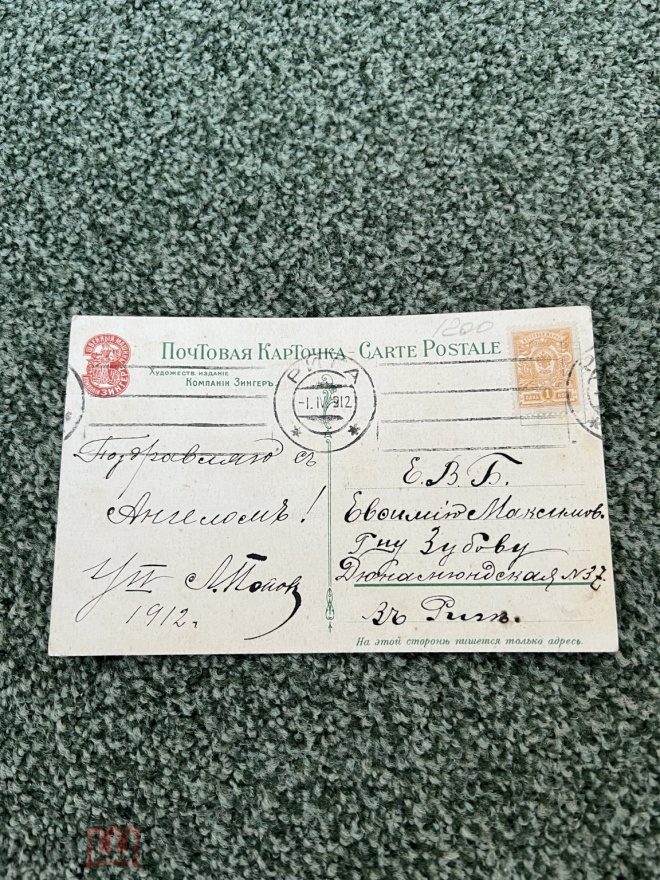 1200
ПОЧТОВАЯ КАРТОЧКА - CARTE POSTALE
ШВЕЙНЫЯ МАШИНЫ
ЗИНГЕРЪ
Художеств. издание
Компании Зингеръ.
РИГА
-1.IV 912
Поздравляю съ
Ангеломъ!
А. Попов
1912 г.
Е. В. Б.
Евѳимію Максимов.
Г-ну Зубову
Дюнамюндская № 37
Въ Ригѣ.
На этой сторонѣ пишется только адресъ.
1